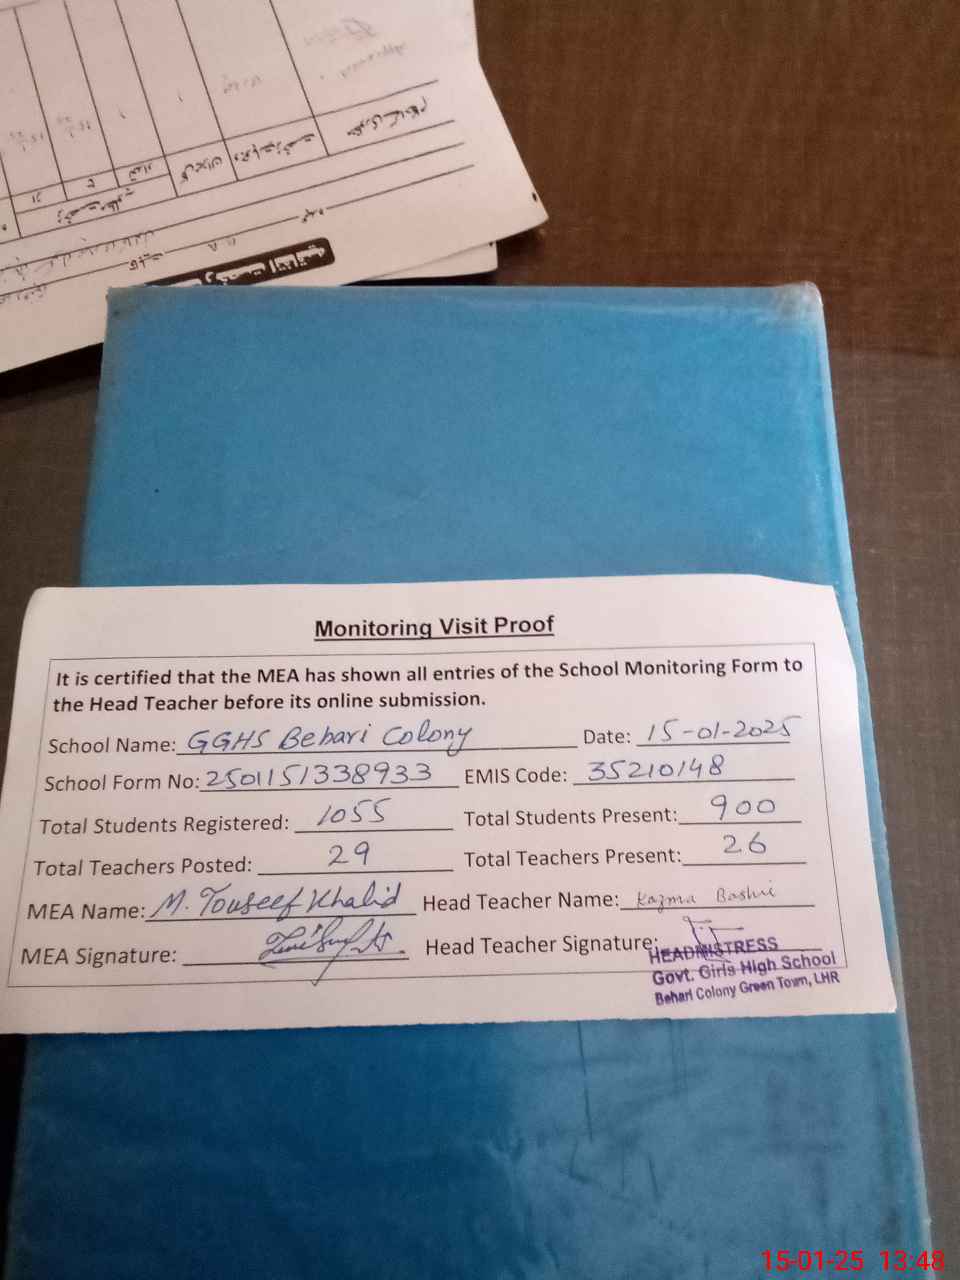 رخصت اتفاقیہ
Monitoring Visit Proof
It is certified that the MEA has shown all entries of the School Monitoring Form to
the Head Teacher before its online submission.
School Name: GGHS Behari Colony Date: 15-01-2025
School Form No: 2501151338933 EMIS Code: 35210148
Total Students Registered: 1055 Total Students Present: 900
Total Teachers Posted: 29 Total Teachers Present: 26
MEA Name: M. Touseef Khalid Head Teacher Name: Kazma
MEA Signature: Head Teacher Signature:
HEADMISTRESS
Govt. Girls High School
Behari Colony Green Town, LHR
15-01-25 13:48